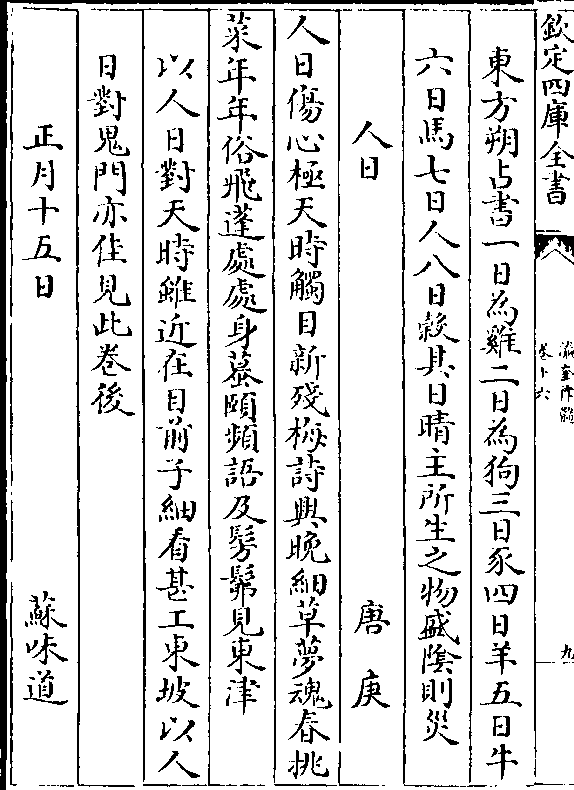 欽定四庫全書
瀛奎律髓
卷十六
九
東方朔占書一日為雞二日為狗三日豕四日羊五日牛
六日馬七日人八日糓其日晴主所生之物盛陰則災
人日 唐庚
人日傷心極天時觸目新殘梅詩興晚細草夢魂春挑
菜年年俗飛蓬處處身蟇頤頻語及髣髴見東津
以人日對天時雖近在目前子細看甚工東坡以人
日對鬼門亦佳見此卷後
正月十五日 蘇味道